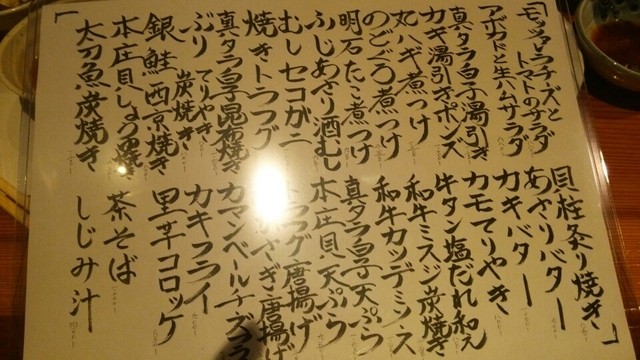 モッツァレラチーズと
トマトのサラダ
アボカドと生ハムサラダ
真タラ白子湯引き
カキ湯引きポンズ
丸ハギ煮つけ
のどぐろ煮つけ
明石たこ煮つけ
ふじあさり酒むし
むしセコガニ
焼きトラフグ
真タラ白子昆布焼き
ぶり てりやき
炭焼き
銀鮭西京焼き
本庄貝しょう油焼き
太刀魚炭焼き
貝柱炙り焼き
あさりバター
カキバター
カモてりやき
牛タン塩だれ和え
和牛ミスジ炭焼き
和牛カツデミソース
真タラ白子天ぷら
本庄貝天ぷら
トラフグ唐揚げ
さぎ唐揚げ
カマンベールチーズフラ
カキフライ
里芋コロッケ
茶そば
しじみ汁